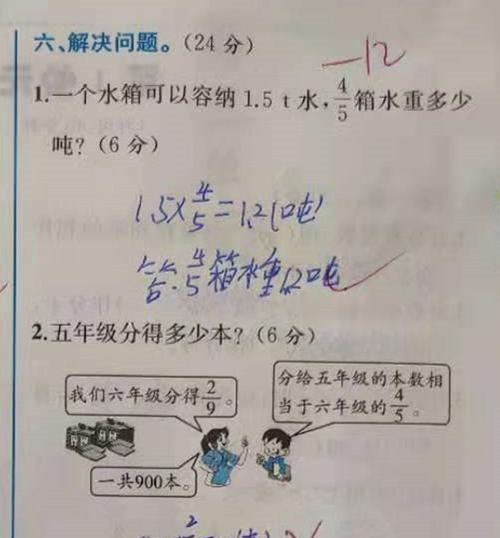 六、解决问题。(24分)
-12
1.一个水箱可以容纳1.5 t水,4/5箱水重多少
吨?(6分)
1.5×4/5=1.2(吨)
答:4/5箱水重1.2吨
2.五年级分得多少本?(6分)
我们六年级分得2/9。
分给五年级的本数相
当于六年级的4/5。
一共900本。